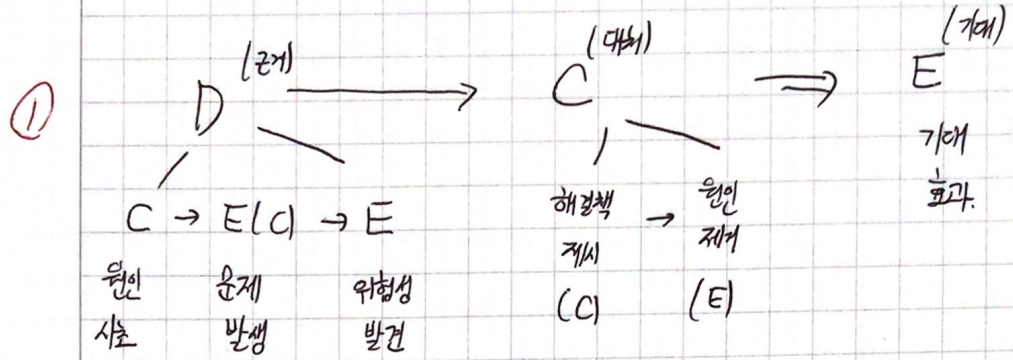 ①
D (근거) → C (대처) ⇒ E (기대)
C → E(C) → E
원인 시초
문제 발생
위험성 발견
해결책 제시 (C) → 원인 제거 (E)
기대 효과.